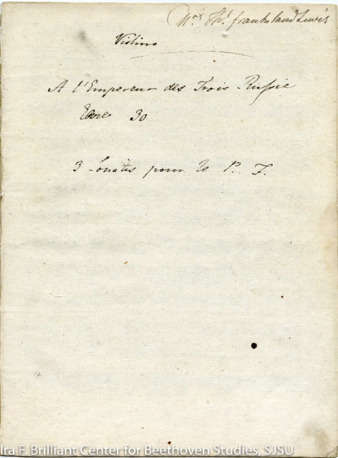 Mrs. Th. frankland Lewis
Violino
A l'Empereur des Trois Russie
30
3 Sonates pour le P. F.
Ira F. Brilliant Center for Beethoven Studies, SJSU